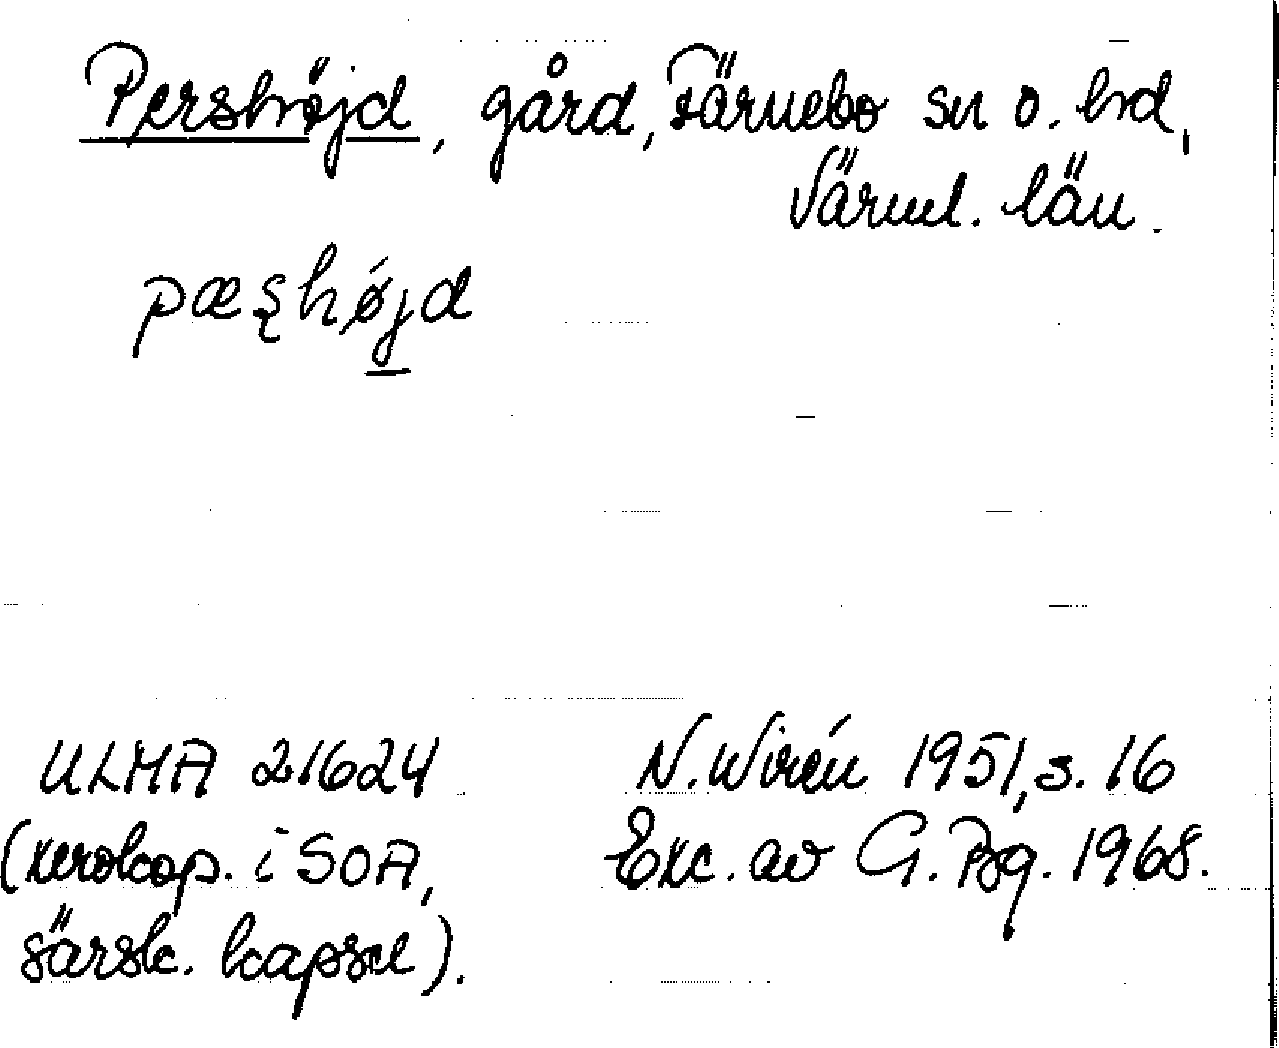 Pershöjd, gård, Färnebo sn o. hd,
Värml. län.
pæʂhøjd
ULMA 21624
(xerokop. i SOA,
särsk. kapsel).
N. Wirén 1951, s. 16
Exc. av G. Bg. 1968.